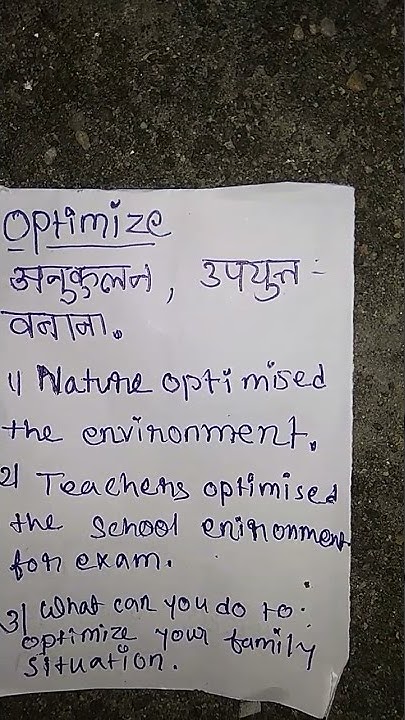 Optimize
अनुकुलन, उपयुक्त -
बनाना.
1) Nature optimised
the environment.
2) Teachers optimised
the school enironment
for exam.
3) What can you do to
optimize your family
situation.